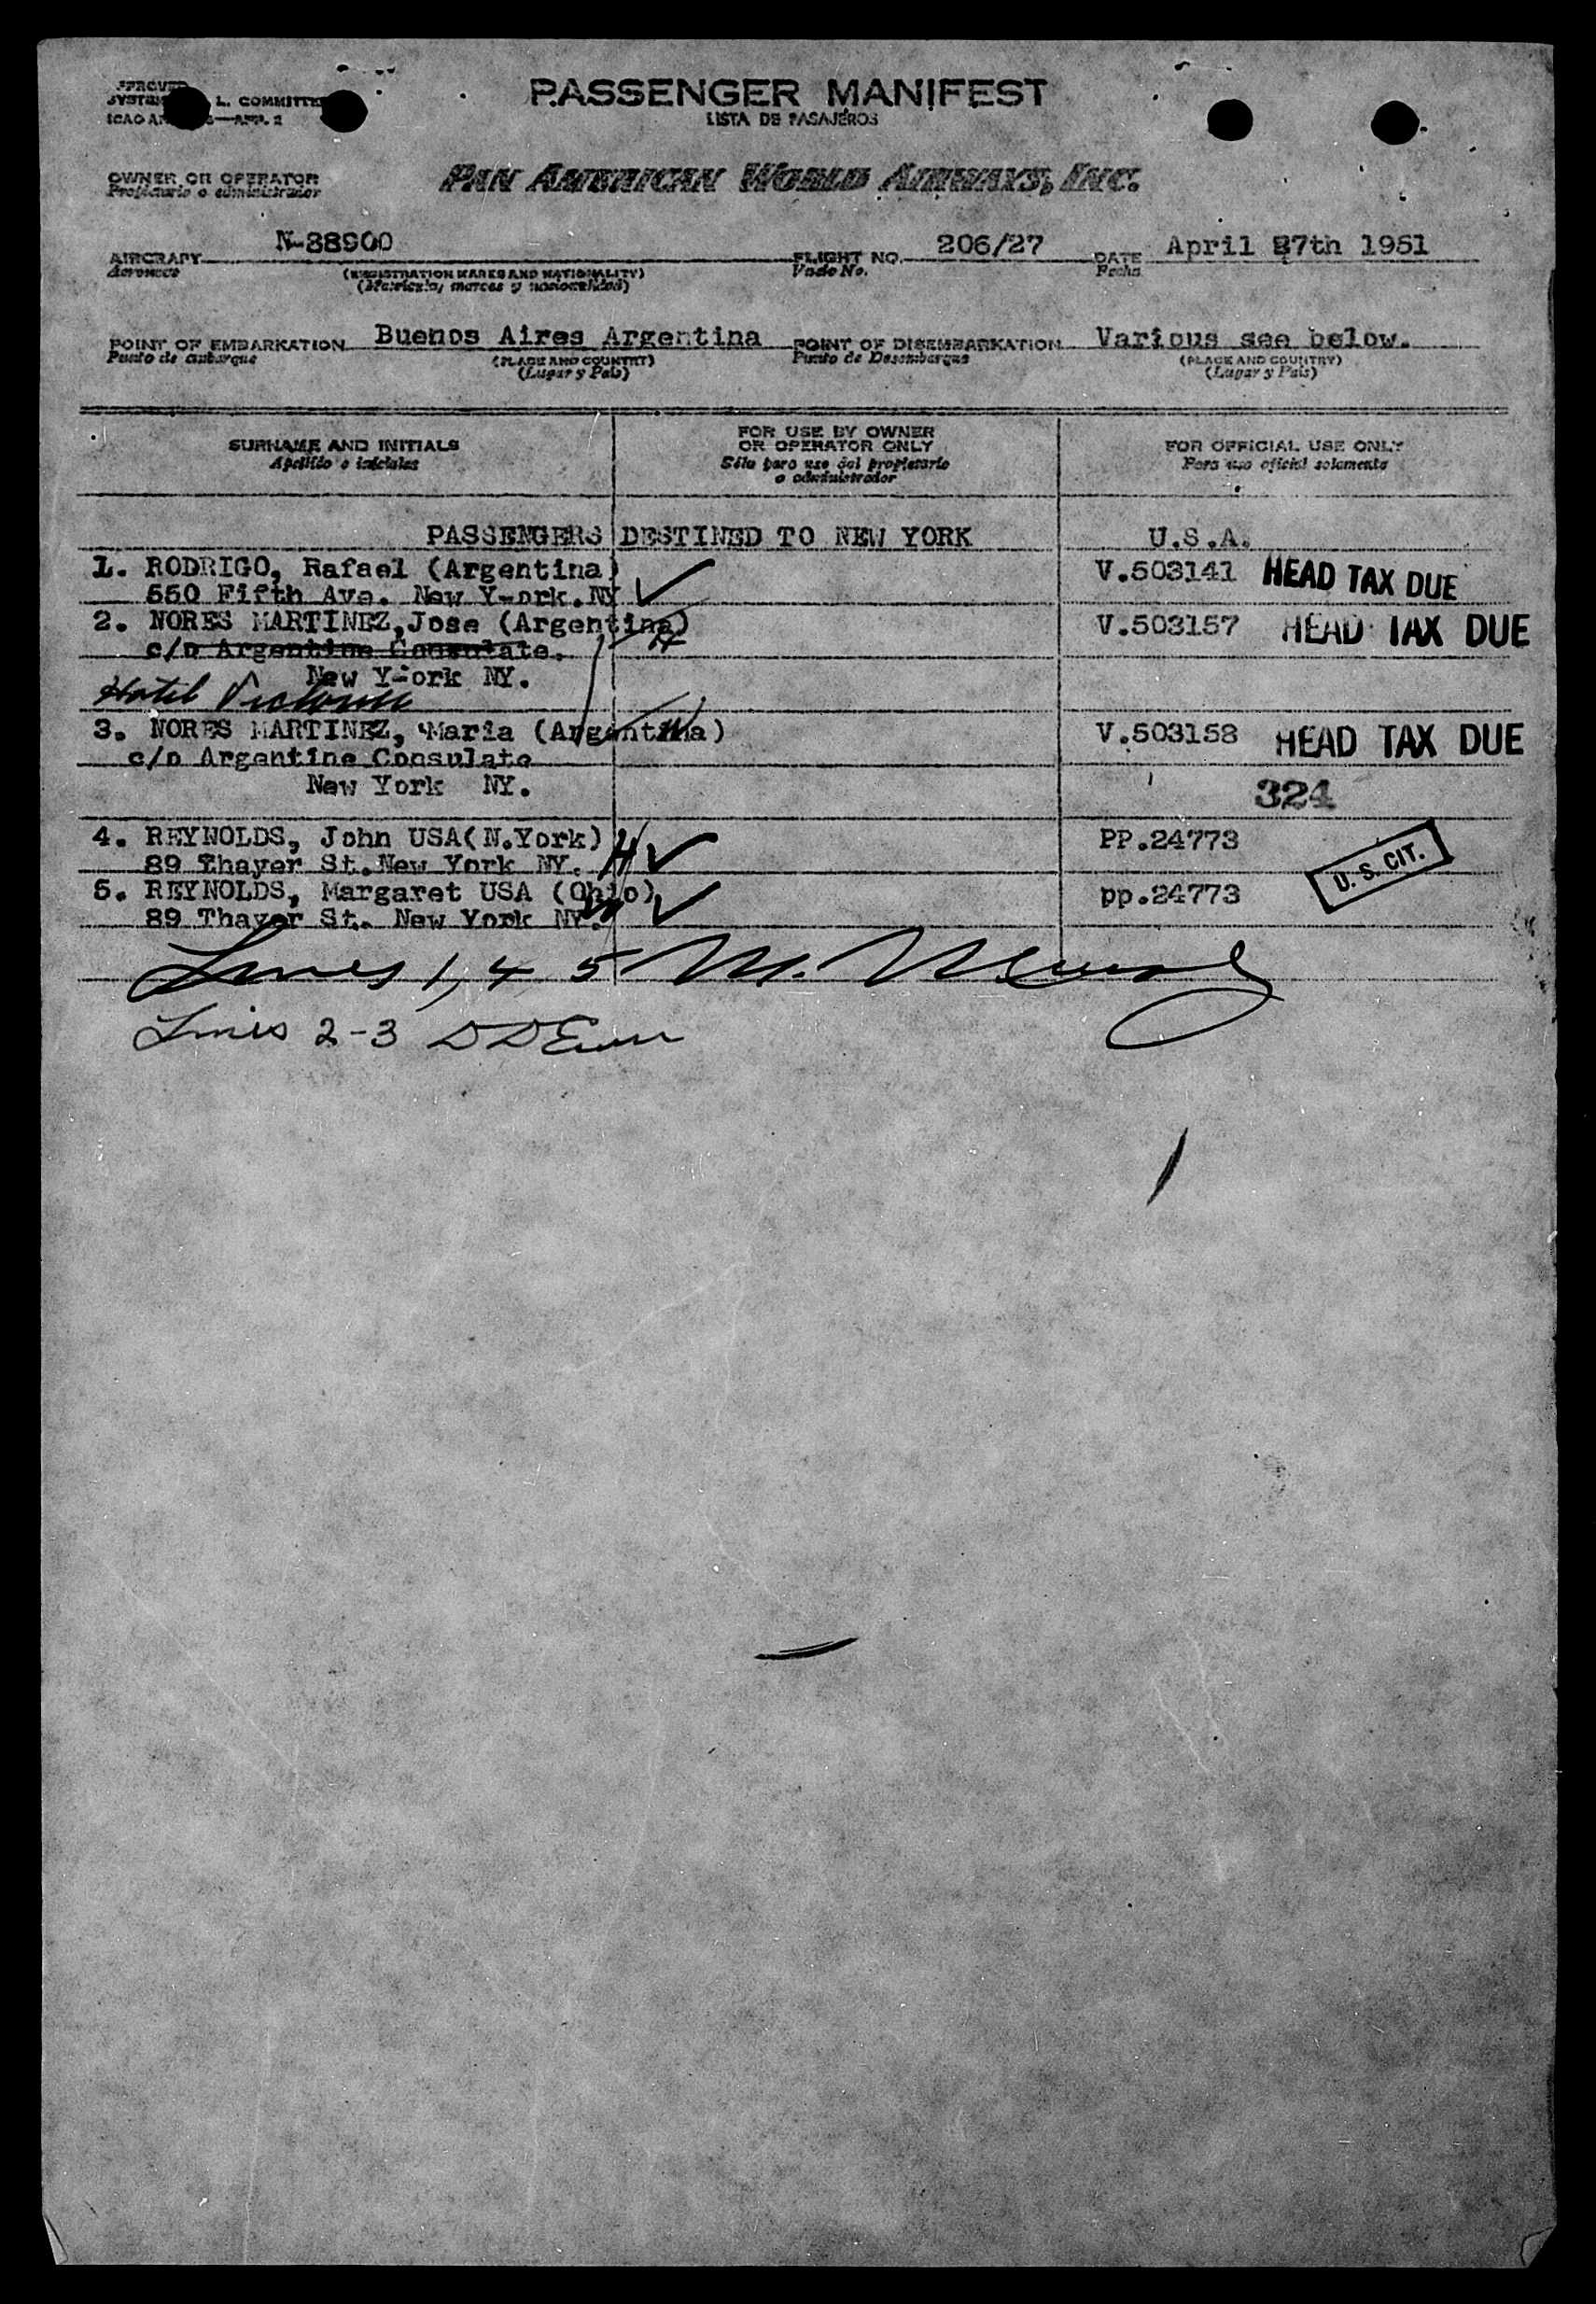 PASSENGER MANIFEST
LISTA DE PASAJEROS
L. COMMITTEE
OWNER OR OPERATOR
Propietario o administrador
PAN AMERICAN WORLD AIRWAYS, INC.
AIRCRAFT N-88900 FLIGHT NO. 206/27 DATE April 27th 1951
Aeronave (REGISTRATION MARKS AND NATIONALITY) Vuelo No. Fecha
(Matricula, marcas y nacionalidad)
POINT OF EMBARKATION Buenos Aires Argentina POINT OF DISEMBARKATION Various see below.
Punto de embarque (PLACE AND COUNTRY) Punto de Desembarque (PLACE AND COUNTRY)
(Lugar y Pais) (Lugar y Pais)
SURNAME AND INITIALS FOR USE BY OWNER OR OPERATOR ONLY FOR OFFICIAL USE ONLY
Apellido e iniciales Sólo para uso del propietario o administrador Para uso oficial solamente
PASSENGERS DESTINED TO NEW YORK U.S.A.
1. RODRIGO, Rafael (Argentina) V.503141 HEAD TAX DUE
550 Fifth Ave. New Y-ork.NY
2. NORES MARTINEZ,Jose (Argentina) V.503157 HEAD TAX DUE
c/o Argentine Consulate.
New Y-ork NY.
Hotel Victoria
3. NORES MARTINEZ, Maria (Argentina) V.503158 HEAD TAX DUE
c/o Argentine Consulate
New York NY. 324
4. REYNOLDS, John USA(N.York) H PP.24773
89 Thayer St.New York NY. U. S. CIT.
5. REYNOLDS, Margaret USA (Ohio) W pp.24773
89 Thayer St. New York NY.
Lines 1, 4 5 M.
Lines 2-3 DD